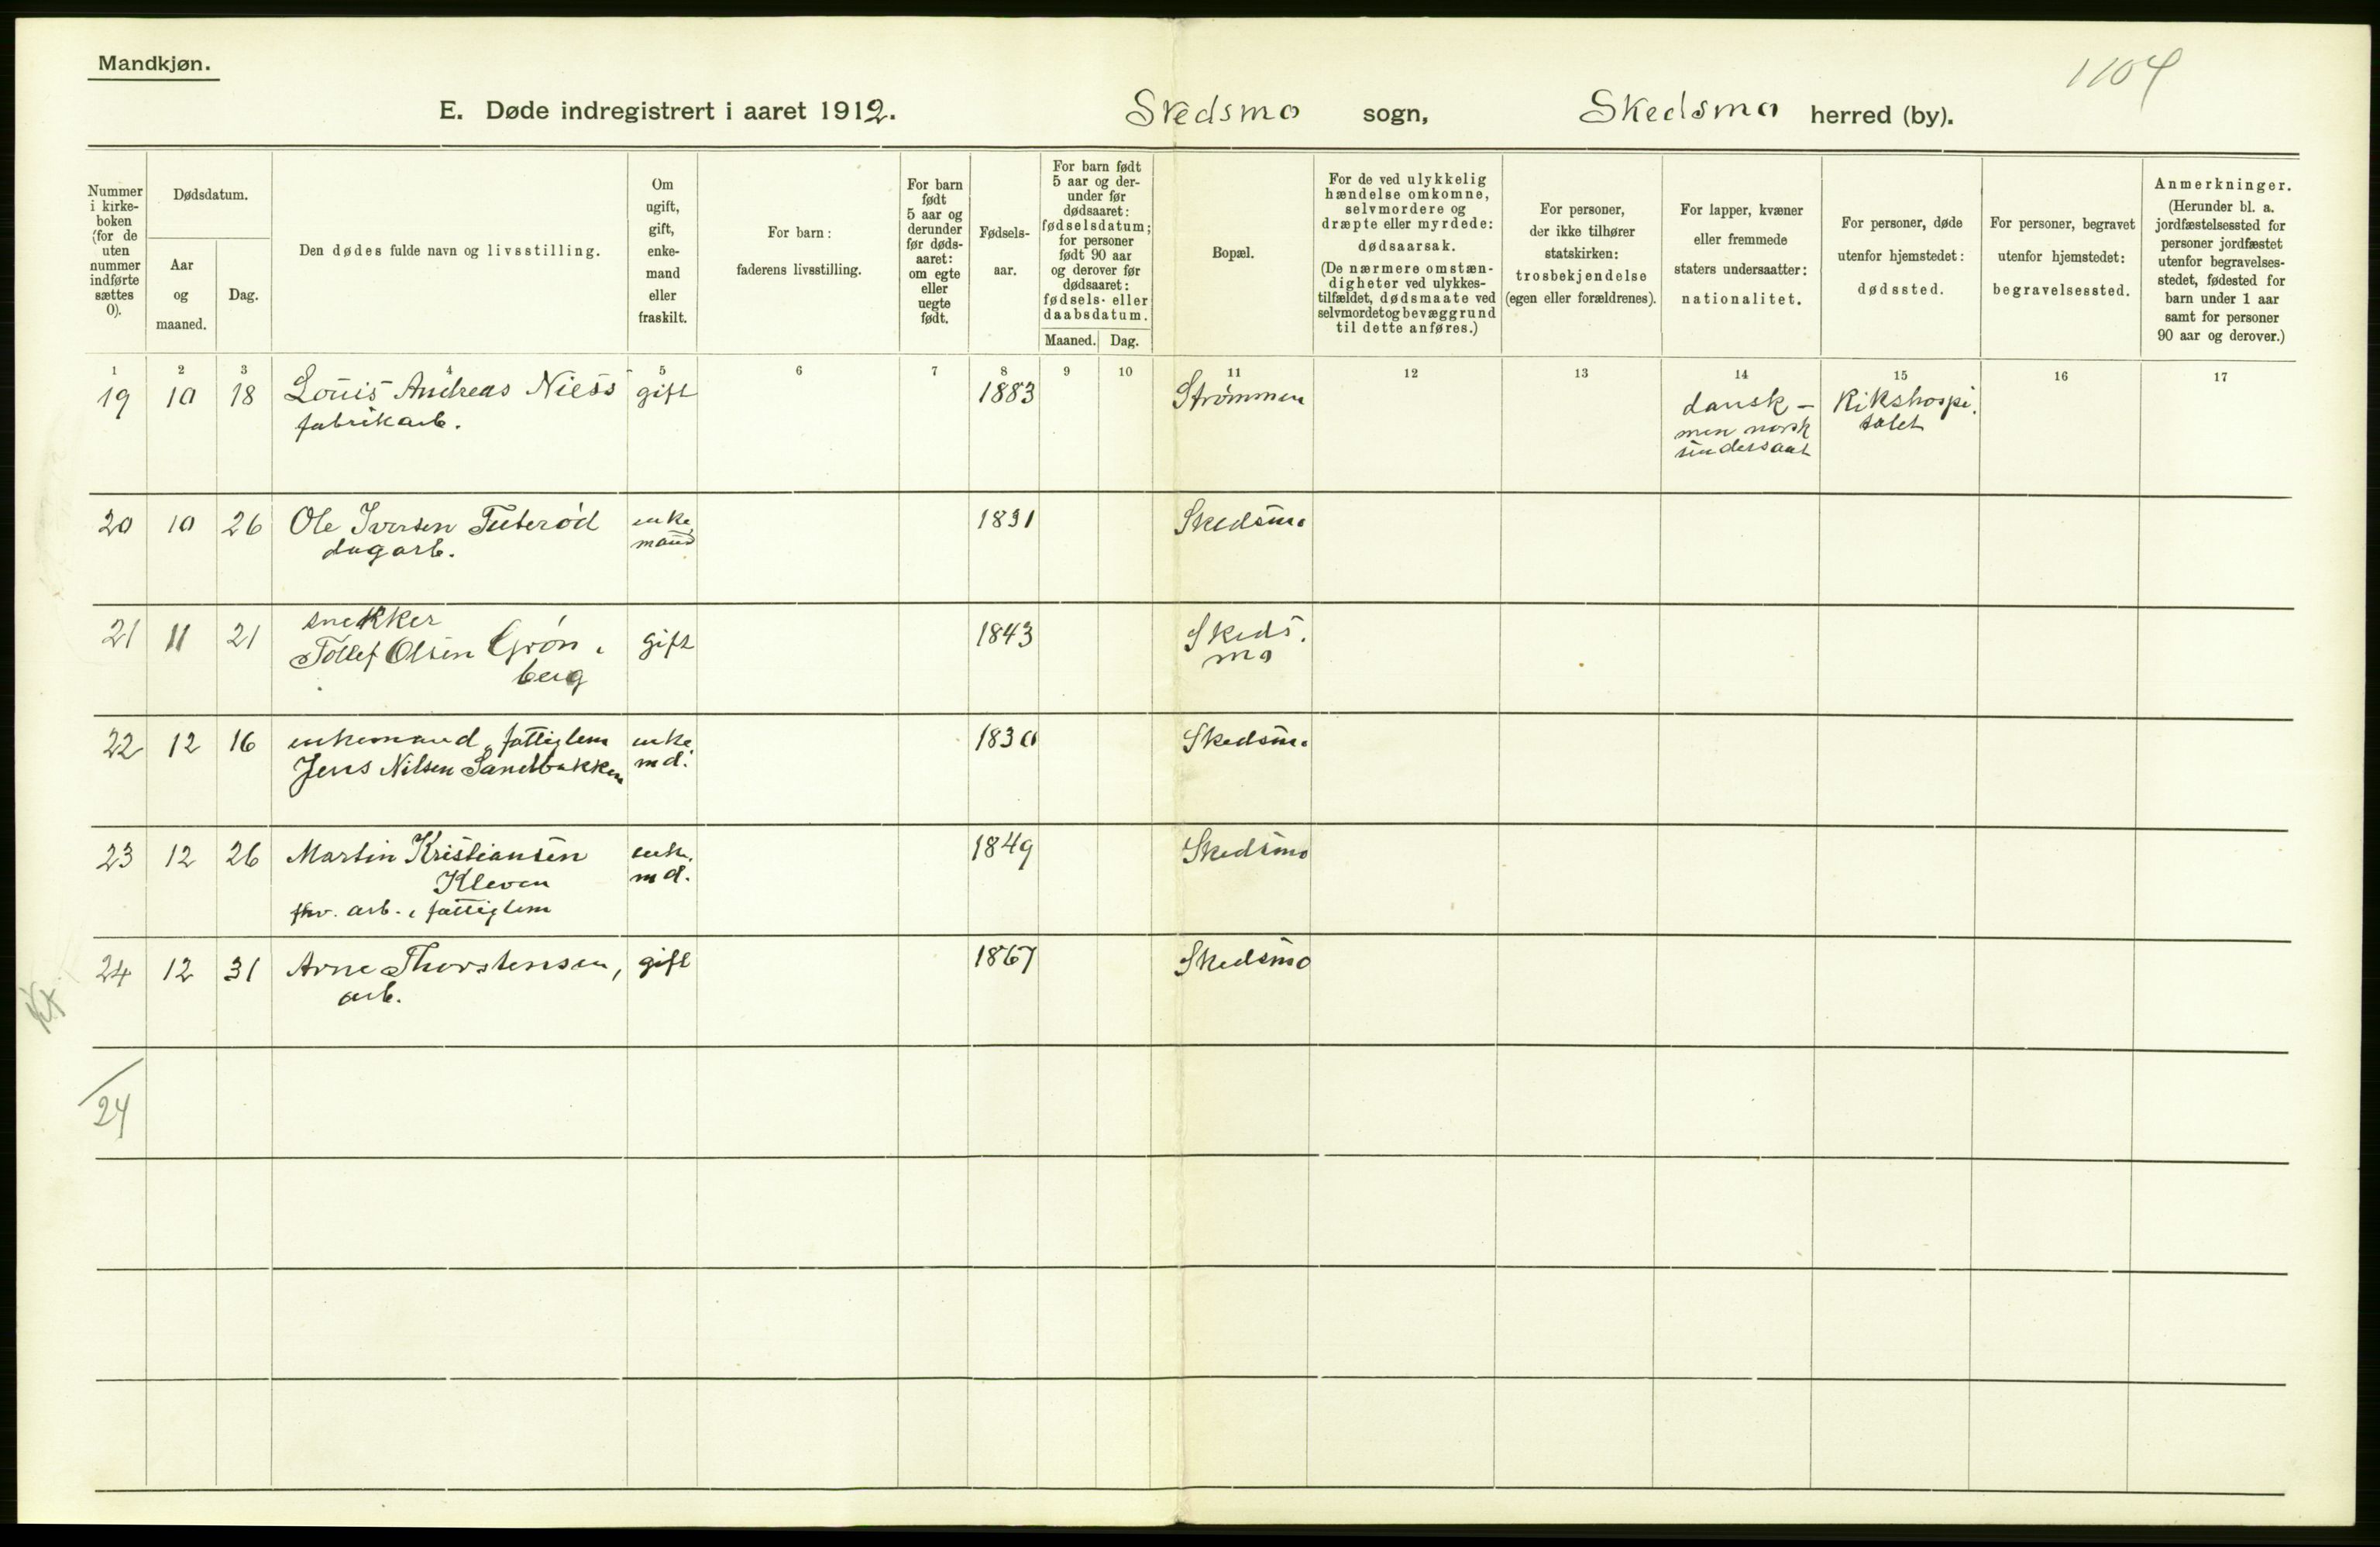 Mandkjøn.
1104
E. Døde indregistrert i aaret 1912. Skedsmo sogn, Skedsmo herred (by).
Nummer i kirke-boken (for de uten nummer indførte sættes 0).
Dødsdatum.
Aar og maaned.
Dag.
Den dødes fulde navn og livsstilling.
Om ugift, gift, enke-mand eller fraskilt.
For barn: faderens livsstilling.
For barn født 5 aar og derunder før døds-aaret: om egte eller uegte født.
Fødsels-aar.
For barn født 5 aar og der-under før dødsaaret: fødselsdatum; for personer født 90 aar og derover før dødsaaret: fødsels- eller daabsdatum.
Maaned. Dag.
Bopæl.
For de ved ulykkelig hændelse omkomne, selvmordere og dræpte eller myrdede: dødsaarsak. (De nærmere omstæn-digheter ved ulykkes-tilfældet, dødsmaate ved selvmordet og bevæggrund til dette anføres.)
For personer, der ikke tilhører statskirken: trosbekjendelse (egen eller forældrenes).
For lapper, kvæner eller fremmede staters undersaatter: nationalitet.
For personer, døde utenfor hjemstedet: dødssted.
For personer, begravet utenfor hjemstedet: begravelsessted.
Anmerkninger. (Herunder bl. a. jordfæstelsessted for personer jordfæstet utenfor begravelses-stedet, fødested for barn under 1 aar samt for personer 90 aar og derover.)
1 2 3 4 5 6 7 8 9 10 11 12 13 14 15 16 17
19 10 18 Louis Andreas Niess gift 1883 Strømmen dansk – Rikshospi.
fabrikarb. men norsk talet
undersaat
20 10 26 Ole Iversen Tuterød enke 1831 Skedsmo
dagarb. mand
snekker
21 11 21 Tollef Olsen Grøn gift 1843 Skeds.
berg mo
22 12 16 enkemand, fattiglem enke 1830 Skedsmo
Jens Nilsen Sandbakken md.
23 12 26 Martin Kristiansen enke. 1849 Skedsmo
Kleven md.
fhv. arb., fattiglem
24 12 31 Arne Thorstensen, gift 1867 Skedsmo
arb.
24